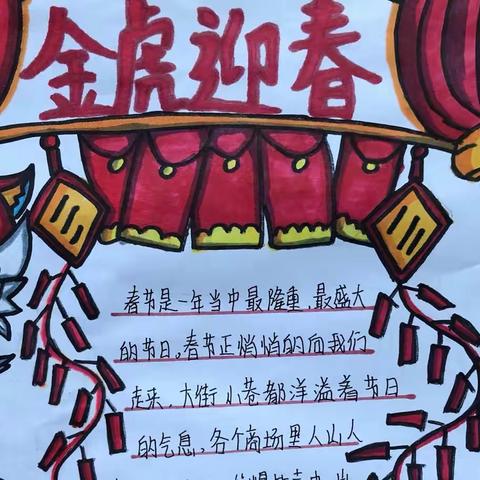 金虎迎春
春节是一年当中最隆重、最盛大
的节日。春节正悄悄的向我们
走来，大街小巷都洋溢着节日
的气息，各个商场里人山人